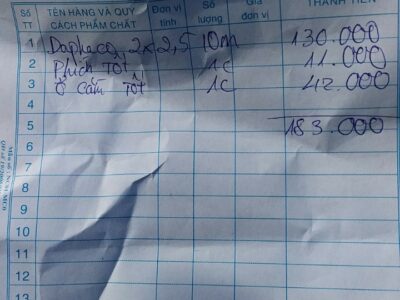 Số TT TÊN HÀNG VÀ QUY CÁCH PHẨM CHẤT Đơn vị tính Số lượng Giá đơn vị THÀNH TIỀN
1 Daphaco 2x2,5 10m 130.000
2 Phích Tốt 1c 11.000
3 Ổ cắm Tốt 1c 42.000
4
5 183.000
6
7
8
9
10
11
12
13